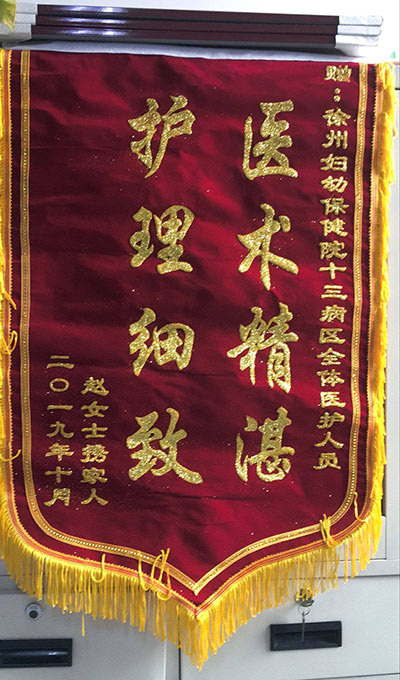 赠：徐州妇幼保健院十三病区全体医护人员
医术精湛
护理细致
赵女士携家人
二〇一九年十月